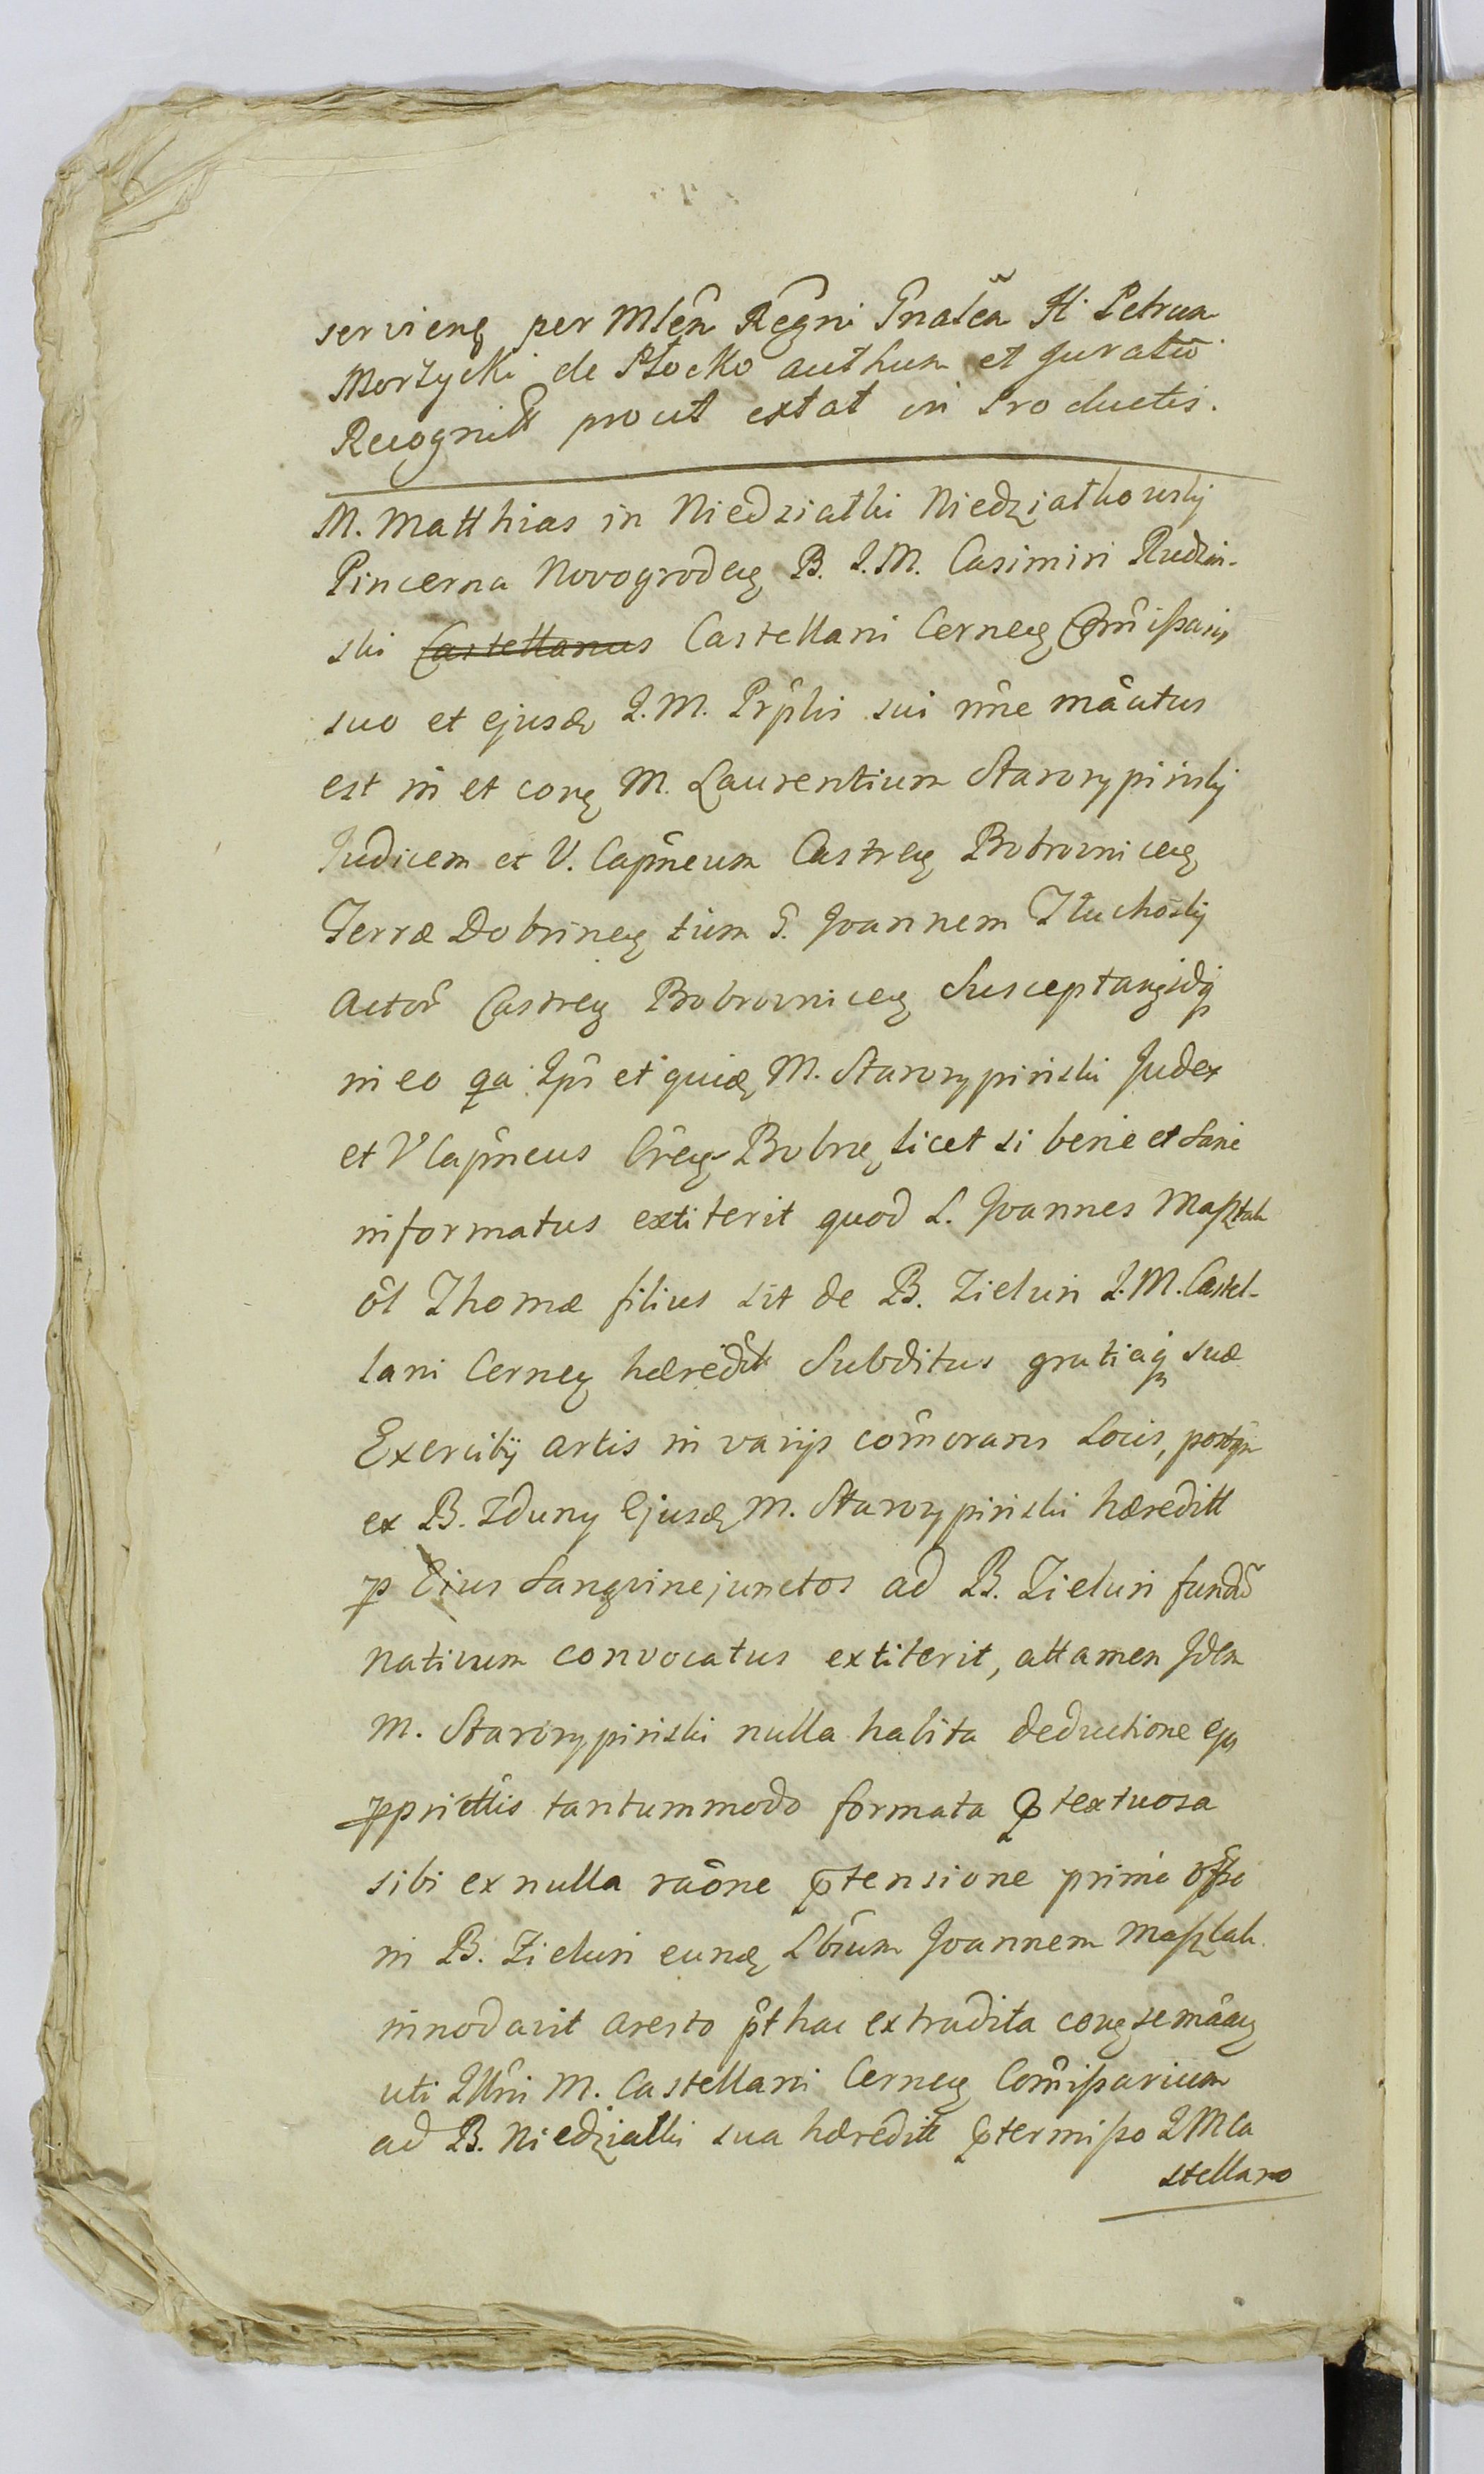 servieñ per Mlem Regni Gñalem H. Petrum
Morzycki de Płocko authum et Juratũ
Recognitt prout extat in Productis.
M. Matthias in Niedziałki Niedziałkowskij
Pincerna Novogrodeñ B. I. M. Casimiri Rudzin-
ski Castellanus Castellani Cerneñ Com̃issarius
suo et ejusd I. M. Prp̃lis sui nñe mãutus
est in et con M. Laurentium Starorypinskij
Judicem et V. Capñeum Castreñ Bobrovniceñ
Terræ Dobrineñ tum G. Joannem Tłuchõskij
Actor̃ Castreñ Bobrovniceñ Susceptanq idq
in eo qa Ips̃i et quid M. Starorypinski Judex
et V Capñeus Cr̃eñ Bobrń licet si bene et sane
informatus extiterit quod L. Joannes Maszlak
õl Thomæ filius sit de B. Zieluń I. M. Castel-
lani Cerneñ hæredit Subditus gratiaq suæ
Exercitij artis in varijs com̃orans Locis, postqm
ex B. Zduny Ejusd M. Starorypinski hæreditt
p Eius Sanguine junctos ad B. Zieluń fundũ
nativum convocatus extiterit, attamen Idem
M. Starorypinski nulla habita deductione ejus
pprietãtis tantummodo formata ptextuosa
sibi ex nulla raõne ptensione prime
in B. Zieluń eund Lbr̃um Joannem Maszlak
innodavit aresto pt hac extradita con semãaeñ
uti Illr̃i M. Castellani Cerneñ Com̃issarium
ad B. Niedziałki sua hæreditt ptermisso I M Ca
stellano